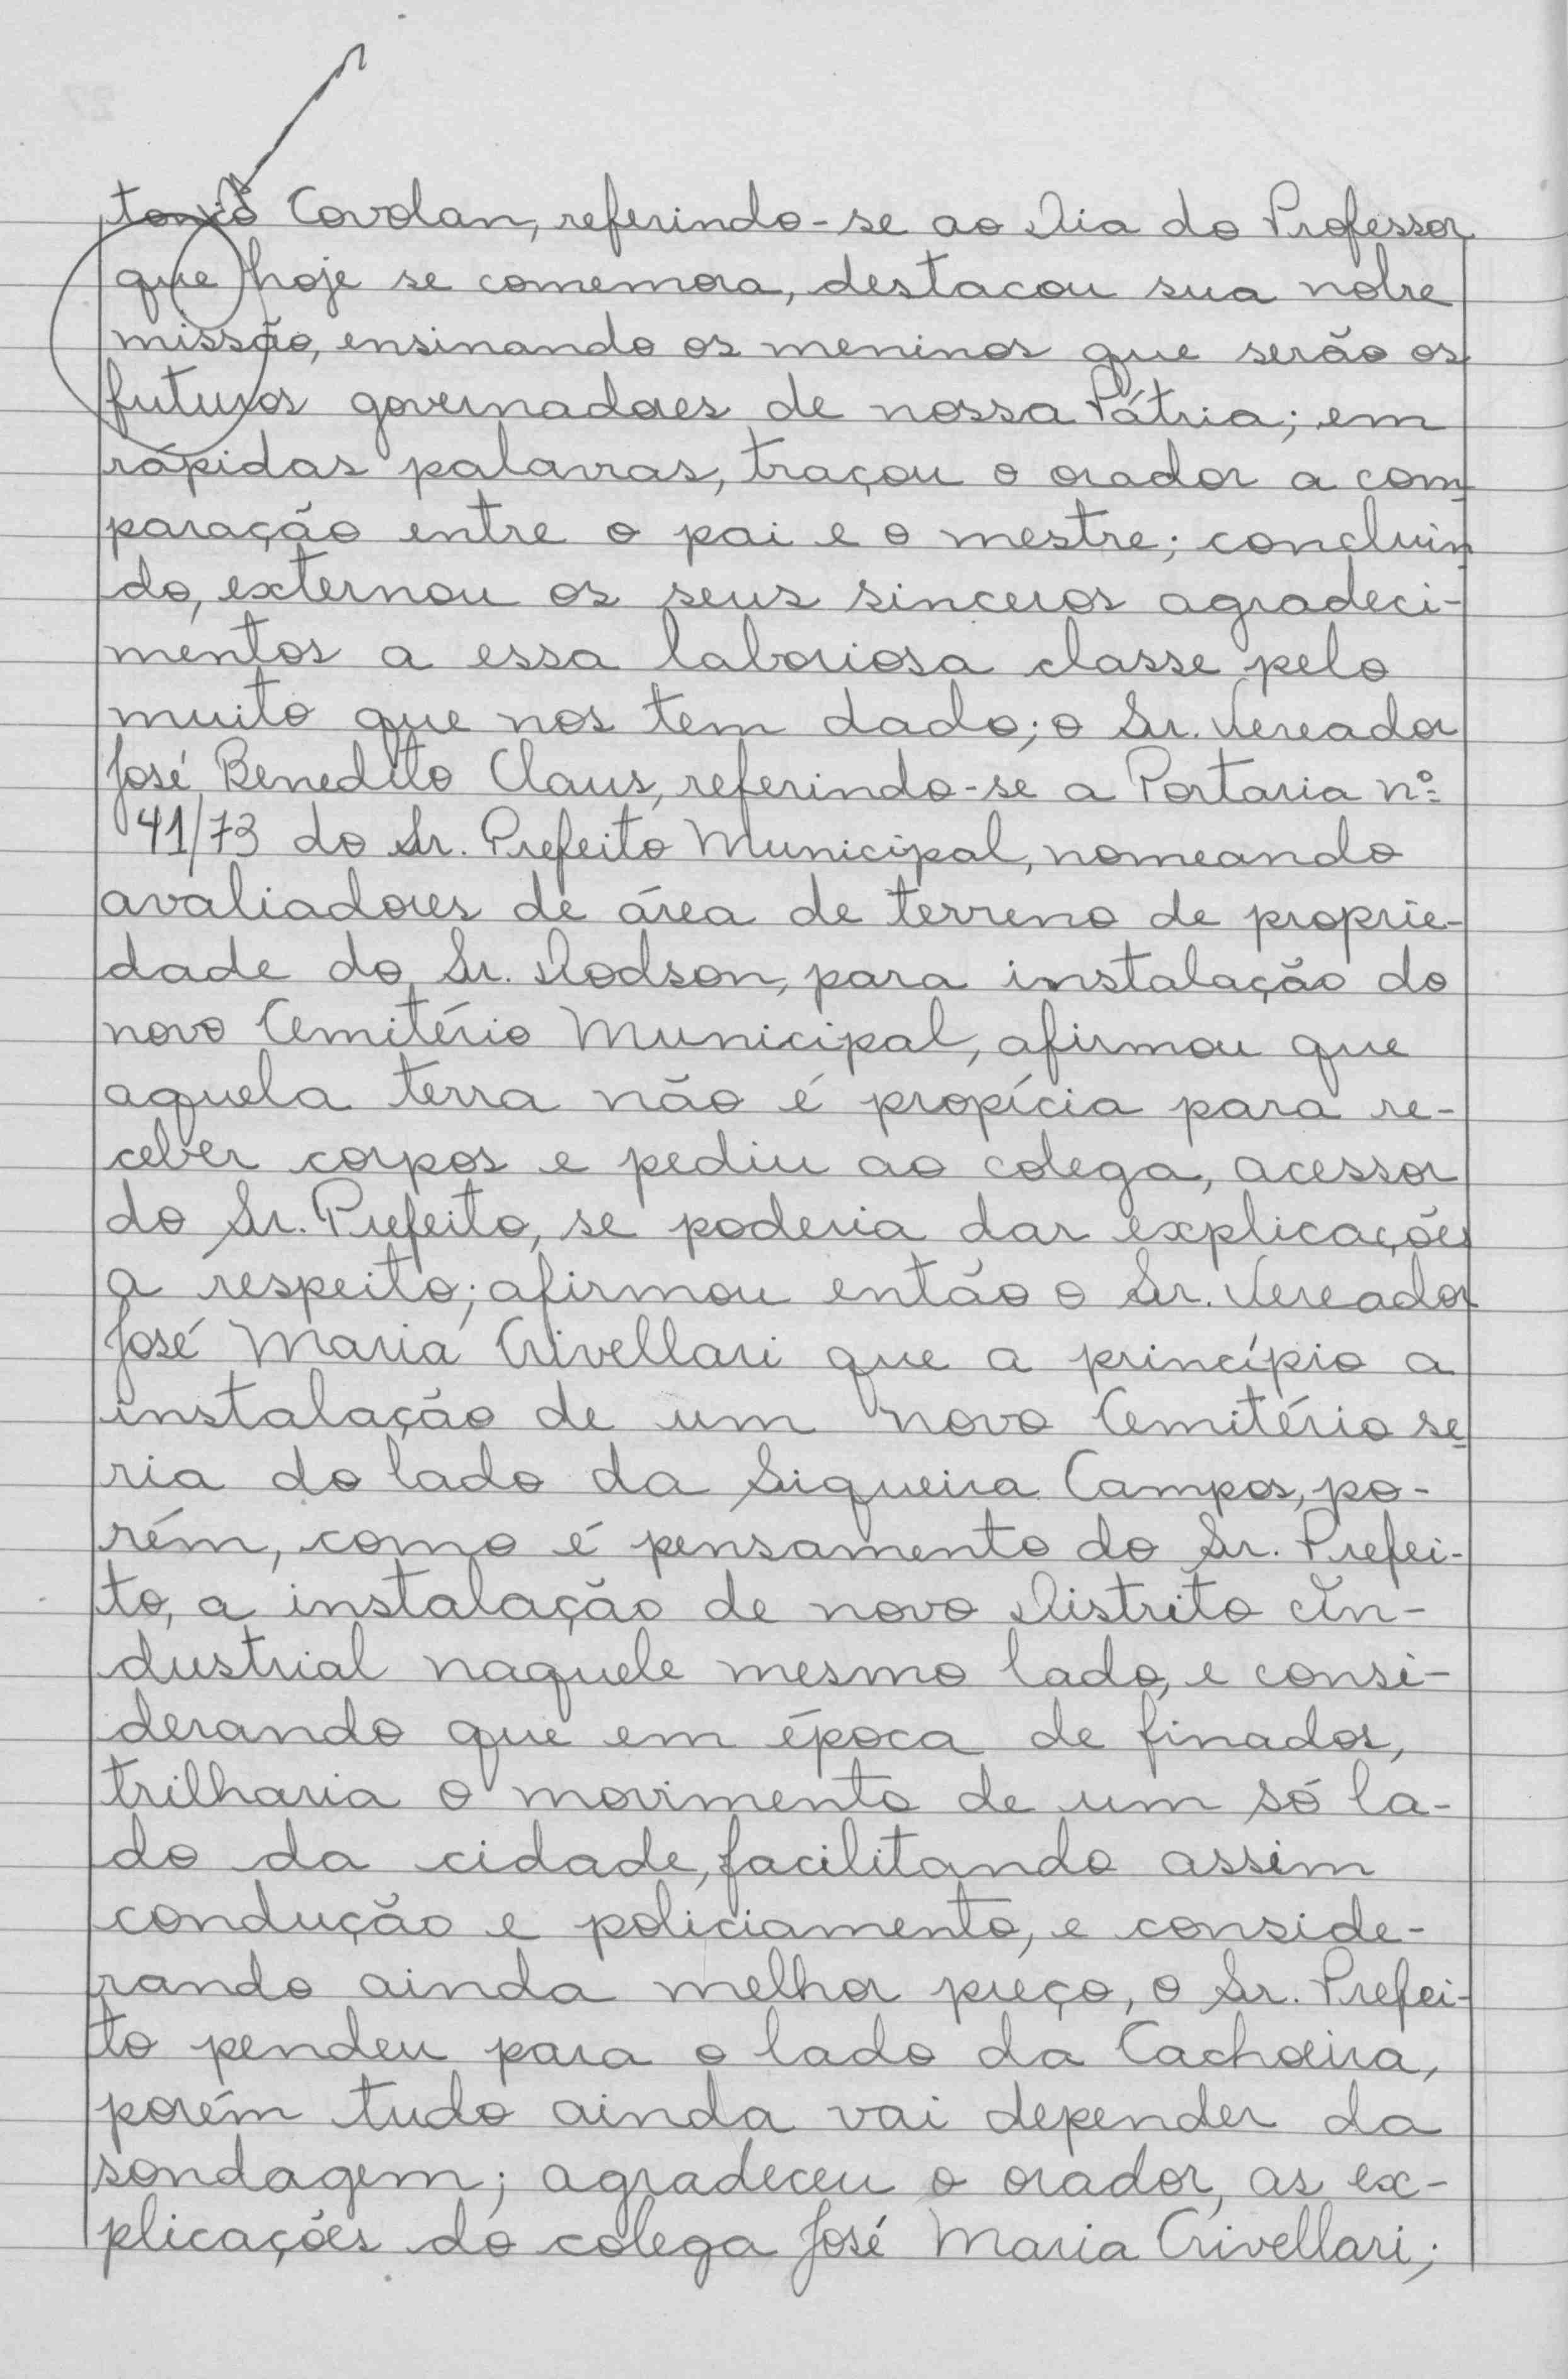 tonio Covolan, referindo-se ao Dia do Professor
que hoje se comemora, destacou sua nobre
missão, ensinando os meninos que serão os
futuros governadores de nossa Pátria; em
rápidas palavras, traçou o orador a com-
paração entre o pai e o mestre; concluin-
do, externou os seus sinceros agradeci-
mentos a essa laboriosa classe pelo
muito que nos tem dado; o Sr. Vereador
José Benedito Claus, referindo-se a Portaria nº
41/73 do Sr. Prefeito Municipal, nomeando
avaliadores de área de terreno de proprie-
dade do Sr. Dodson, para instalação do
novo Cemitério Municipal, afirmou que
aquela terra não é propícia para re-
ceber corpos e pediu ao colega, acessor
do Sr. Prefeito, se poderia dar explicações
a respeito; afirmou então o Sr. Vereador
José Maria Crivellari que a princípio a
instalação de um novo Cemitério se-
ria do lado da Siqueira Campos, po-
rém, como é pensamento do Sr. Prefei-
to, a instalação de novo Distrito In-
dustrial naquele mesmo lado, e consi-
derando que em época de finados,
trilharia o movimento de um só la-
do da cidade, facilitando assim
condução e policiamento, e conside-
rando ainda melhor preço, o Sr. Prefei-
to pendeu para o lado da Cachoeira,
porém tudo ainda vai depender da
sondagem; agradeceu o orador, as ex-
plicações do colega José Maria Crivellari;